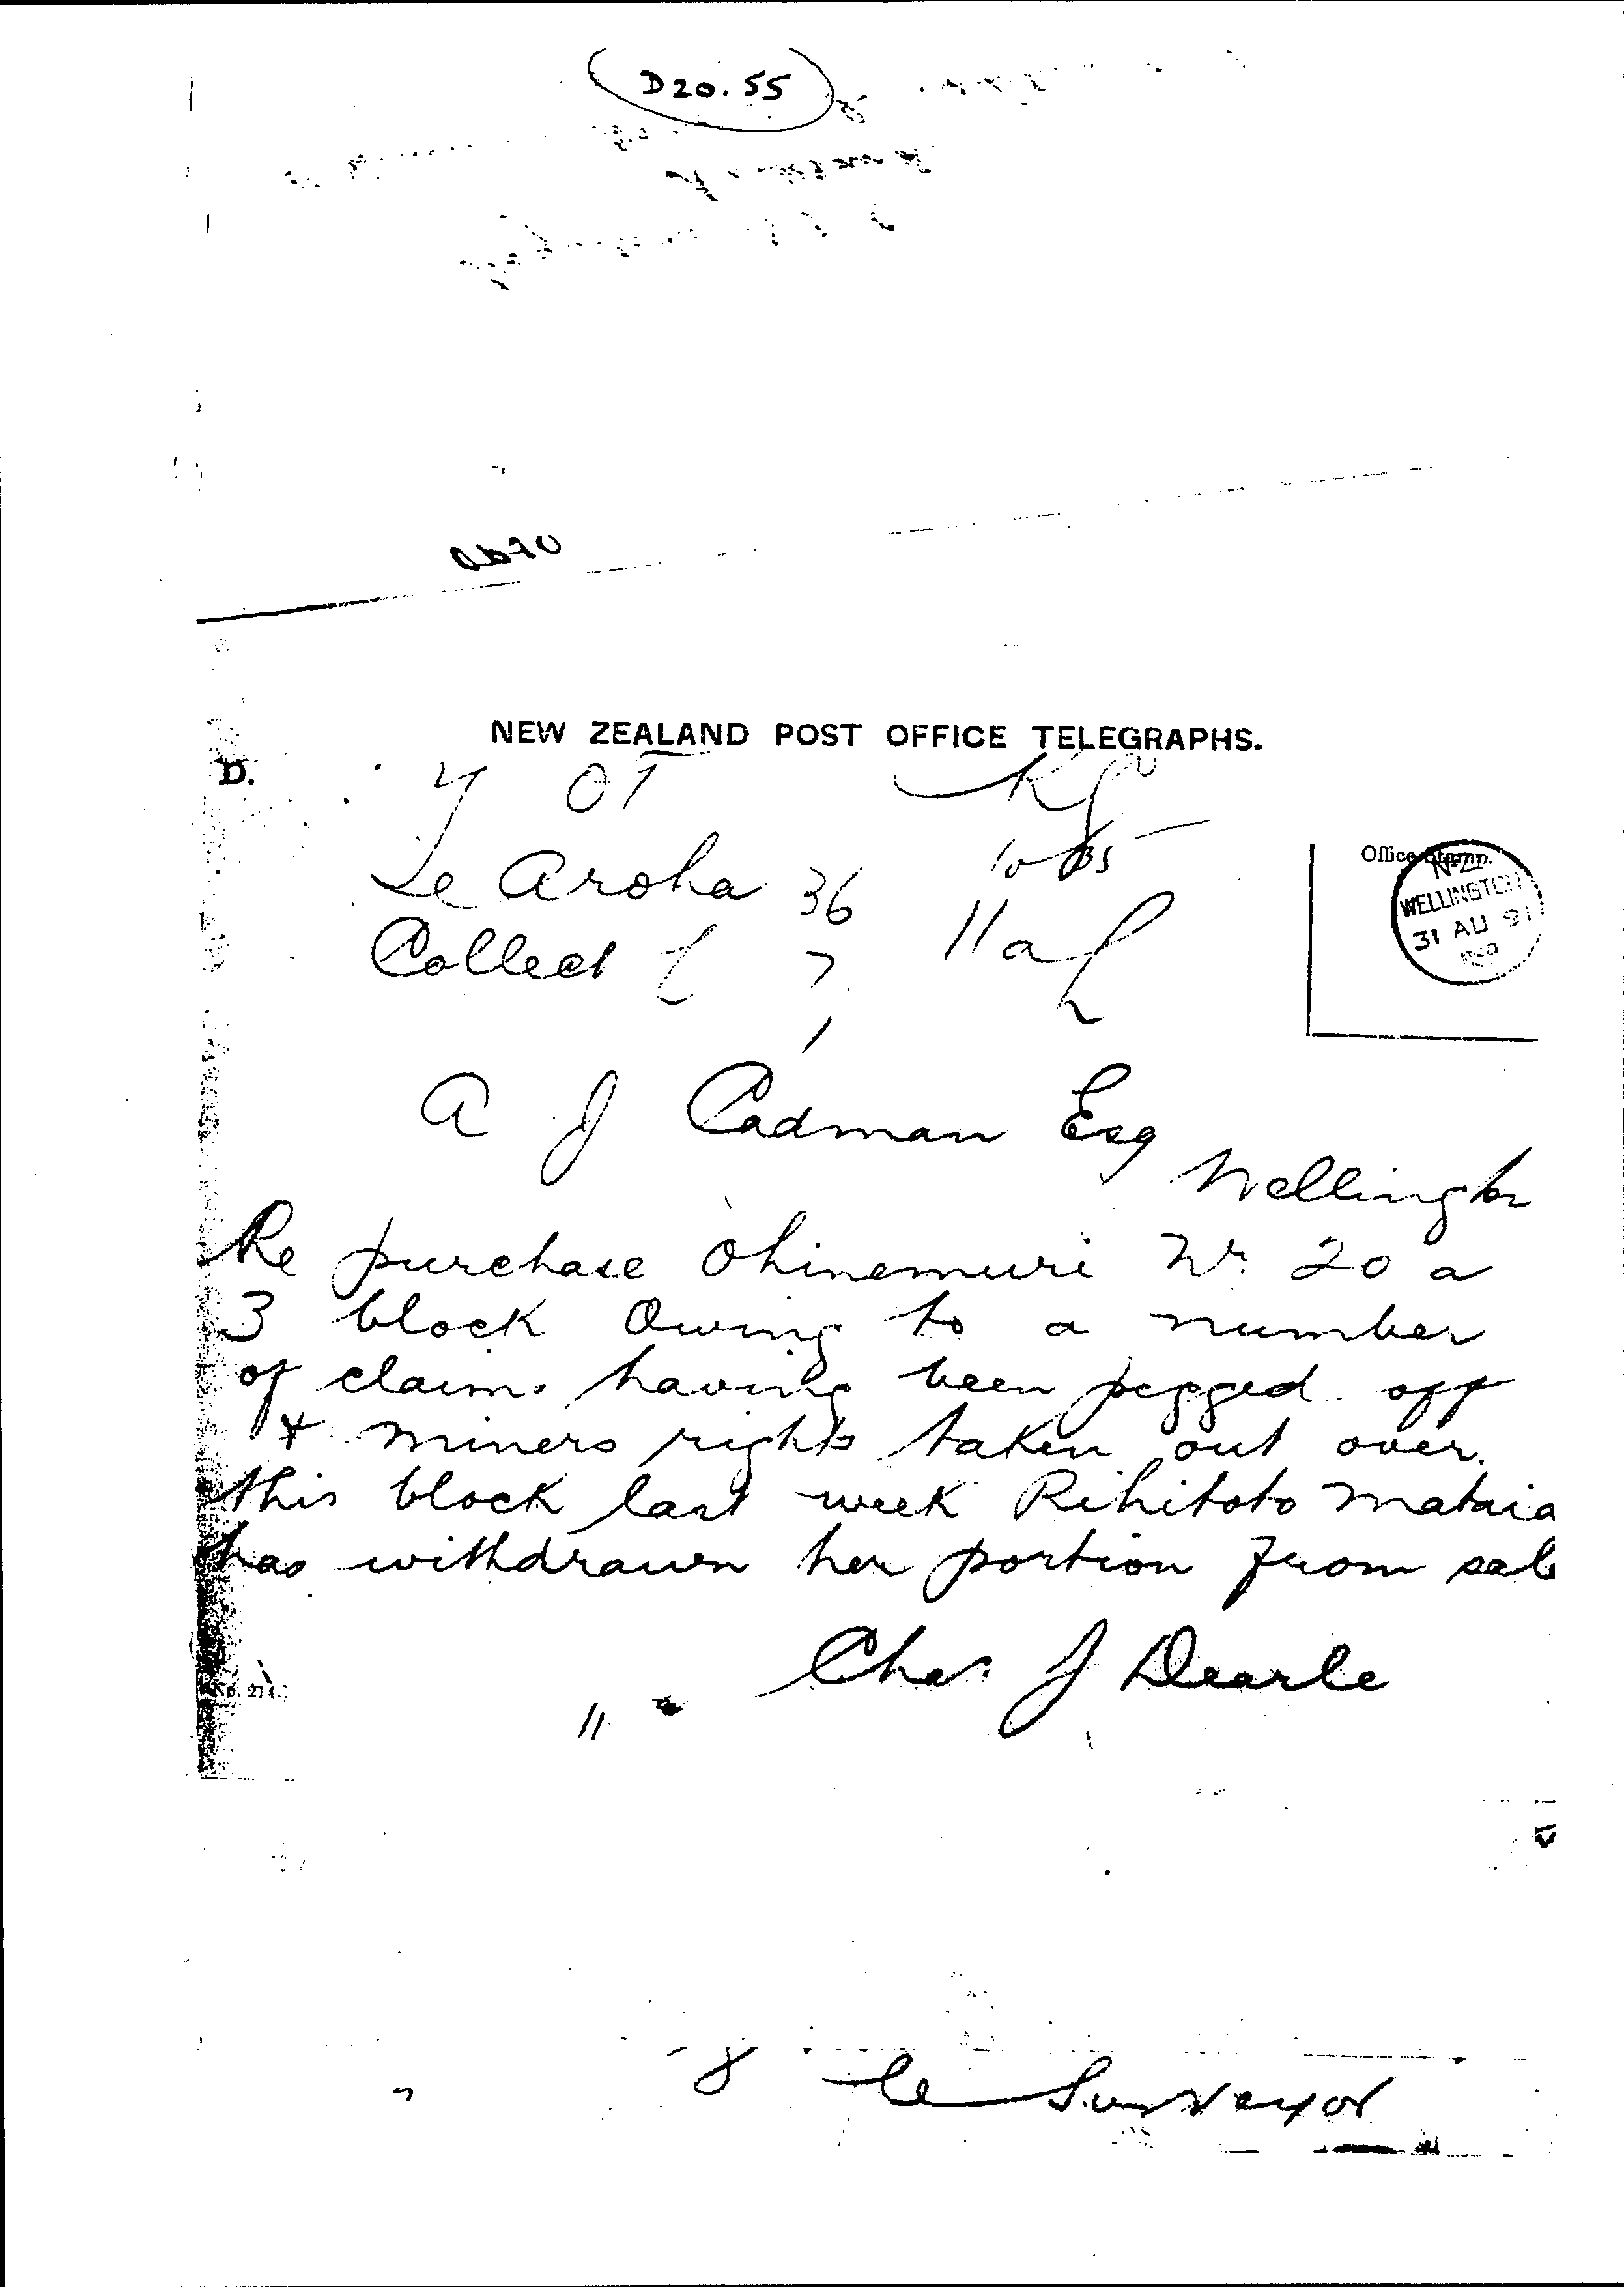 D20.55
NEW ZEALAND POST OFFICE TELEGRAPHS.
D.
Te Aroha 36
10 35
Collect 7
11 a
1
Office Stamp.
WELLINGTON
31 AU 91
A J Cadman Esq
Wellington
Re purchase Ohinemuri Nr. 20 a
3 block Owing to a number
of claims having been pegged off
+ miners rights taken out over
this block last week Rihitoto Mataia
has withdrawn her portion from sale
Chas J Dearle
No. 214.
Surveyor